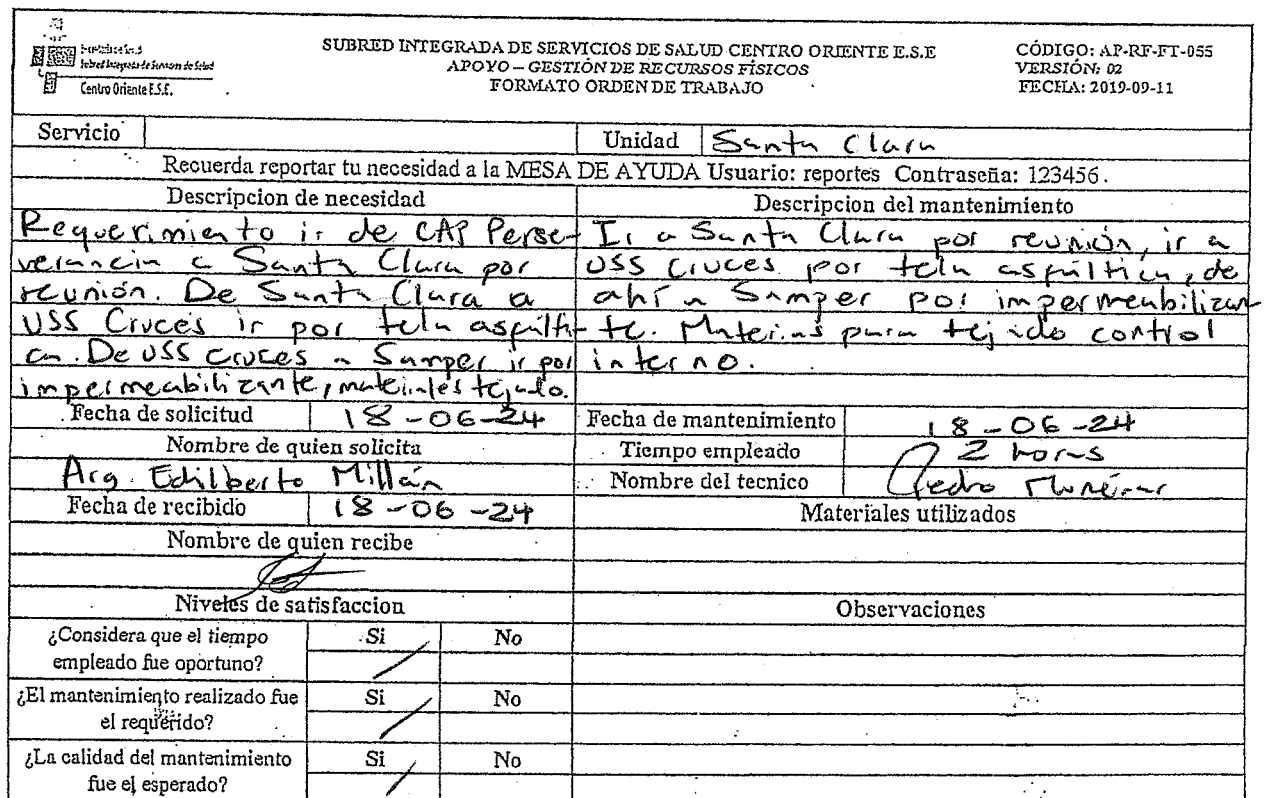 SUBRED INTEGRADA DE SERVICIOS DE SALUD CENTRO ORIENTE E.S.E
APOYO – GESTIÓN DE RECURSOS FÍSICOS
FORMATO ORDEN DE TRABAJO
CÓDIGO: AP-RF-FT-055
VERSIÓN: 02
FECHA: 2019-09-11
Centro Oriente E.S.E.
Servicio
Unidad Santa Clara
Recuerda reportar tu necesidad a la MESA DE AYUDA Usuario: reportes Contraseña: 123456.
Descripcion de necesidad
Requerimiento ir de CAP Perse-
verancia a Santa Clara por
reunión. De Santa Clara a
USS Cruces ir por tela asfálti-
ca. De USS cruces a Samper ir por
impermeabilizante, materiales tejado.
Descripcion del mantenimiento
Ir a Santa Clara por reunión, ir a
USS Cruces por tela asfáltica, de
ahí a Samper por impermeabilizan
te. Materias para tejido control
interno.
Fecha de solicitud 18-06-24
Fecha de mantenimiento 18-06-24
Nombre de quien solicita
Tiempo empleado 2 horas
Arq. Edilberto Millán
Nombre del tecnico Pedro
Fecha de recibido 18-06-24
Materiales utilizados
Nombre de quien recibe
Niveles de satisfaccion
Observaciones
¿Considera que el tiempo
empleado fue oportuno?
Si No
¿El mantenimiento realizado fue
el requerido?
Si No
¿La calidad del mantenimiento
fue el esperado?
Si No